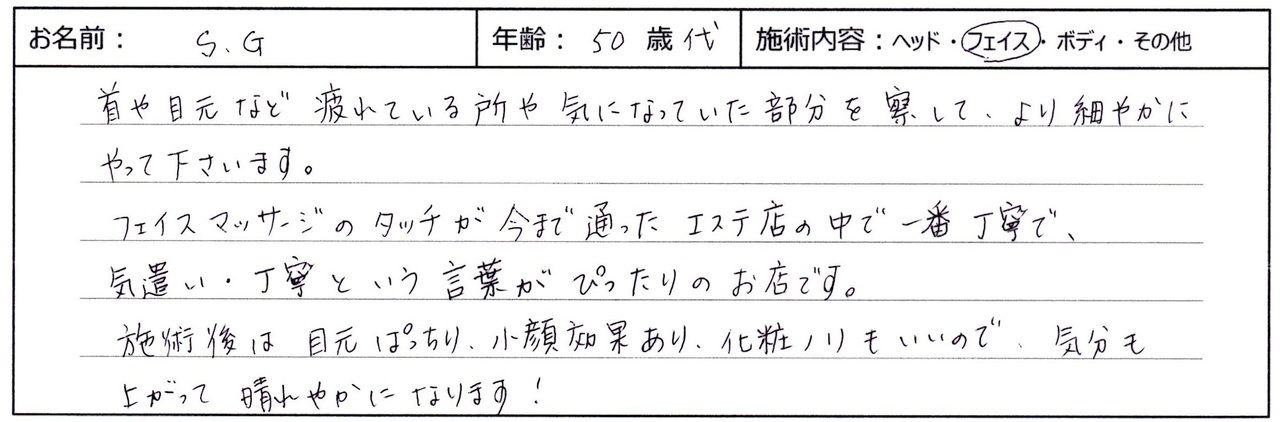 お名前： S.G 年齢： 50 歳代 施術内容：ヘッド・フェイス・ボディ・その他
首や目元など疲れている所や気になっていた部分を察して、より細やかに
やって下さいます。
フェイスマッサージのタッチが今まで通ったエステ店の中で一番丁寧で、
気遣い・丁寧という言葉がぴったりのお店です。
施術後は目元ぱっちり、小顔効果あり、化粧ノリもいいので、気分も
上がって晴れやかになります！